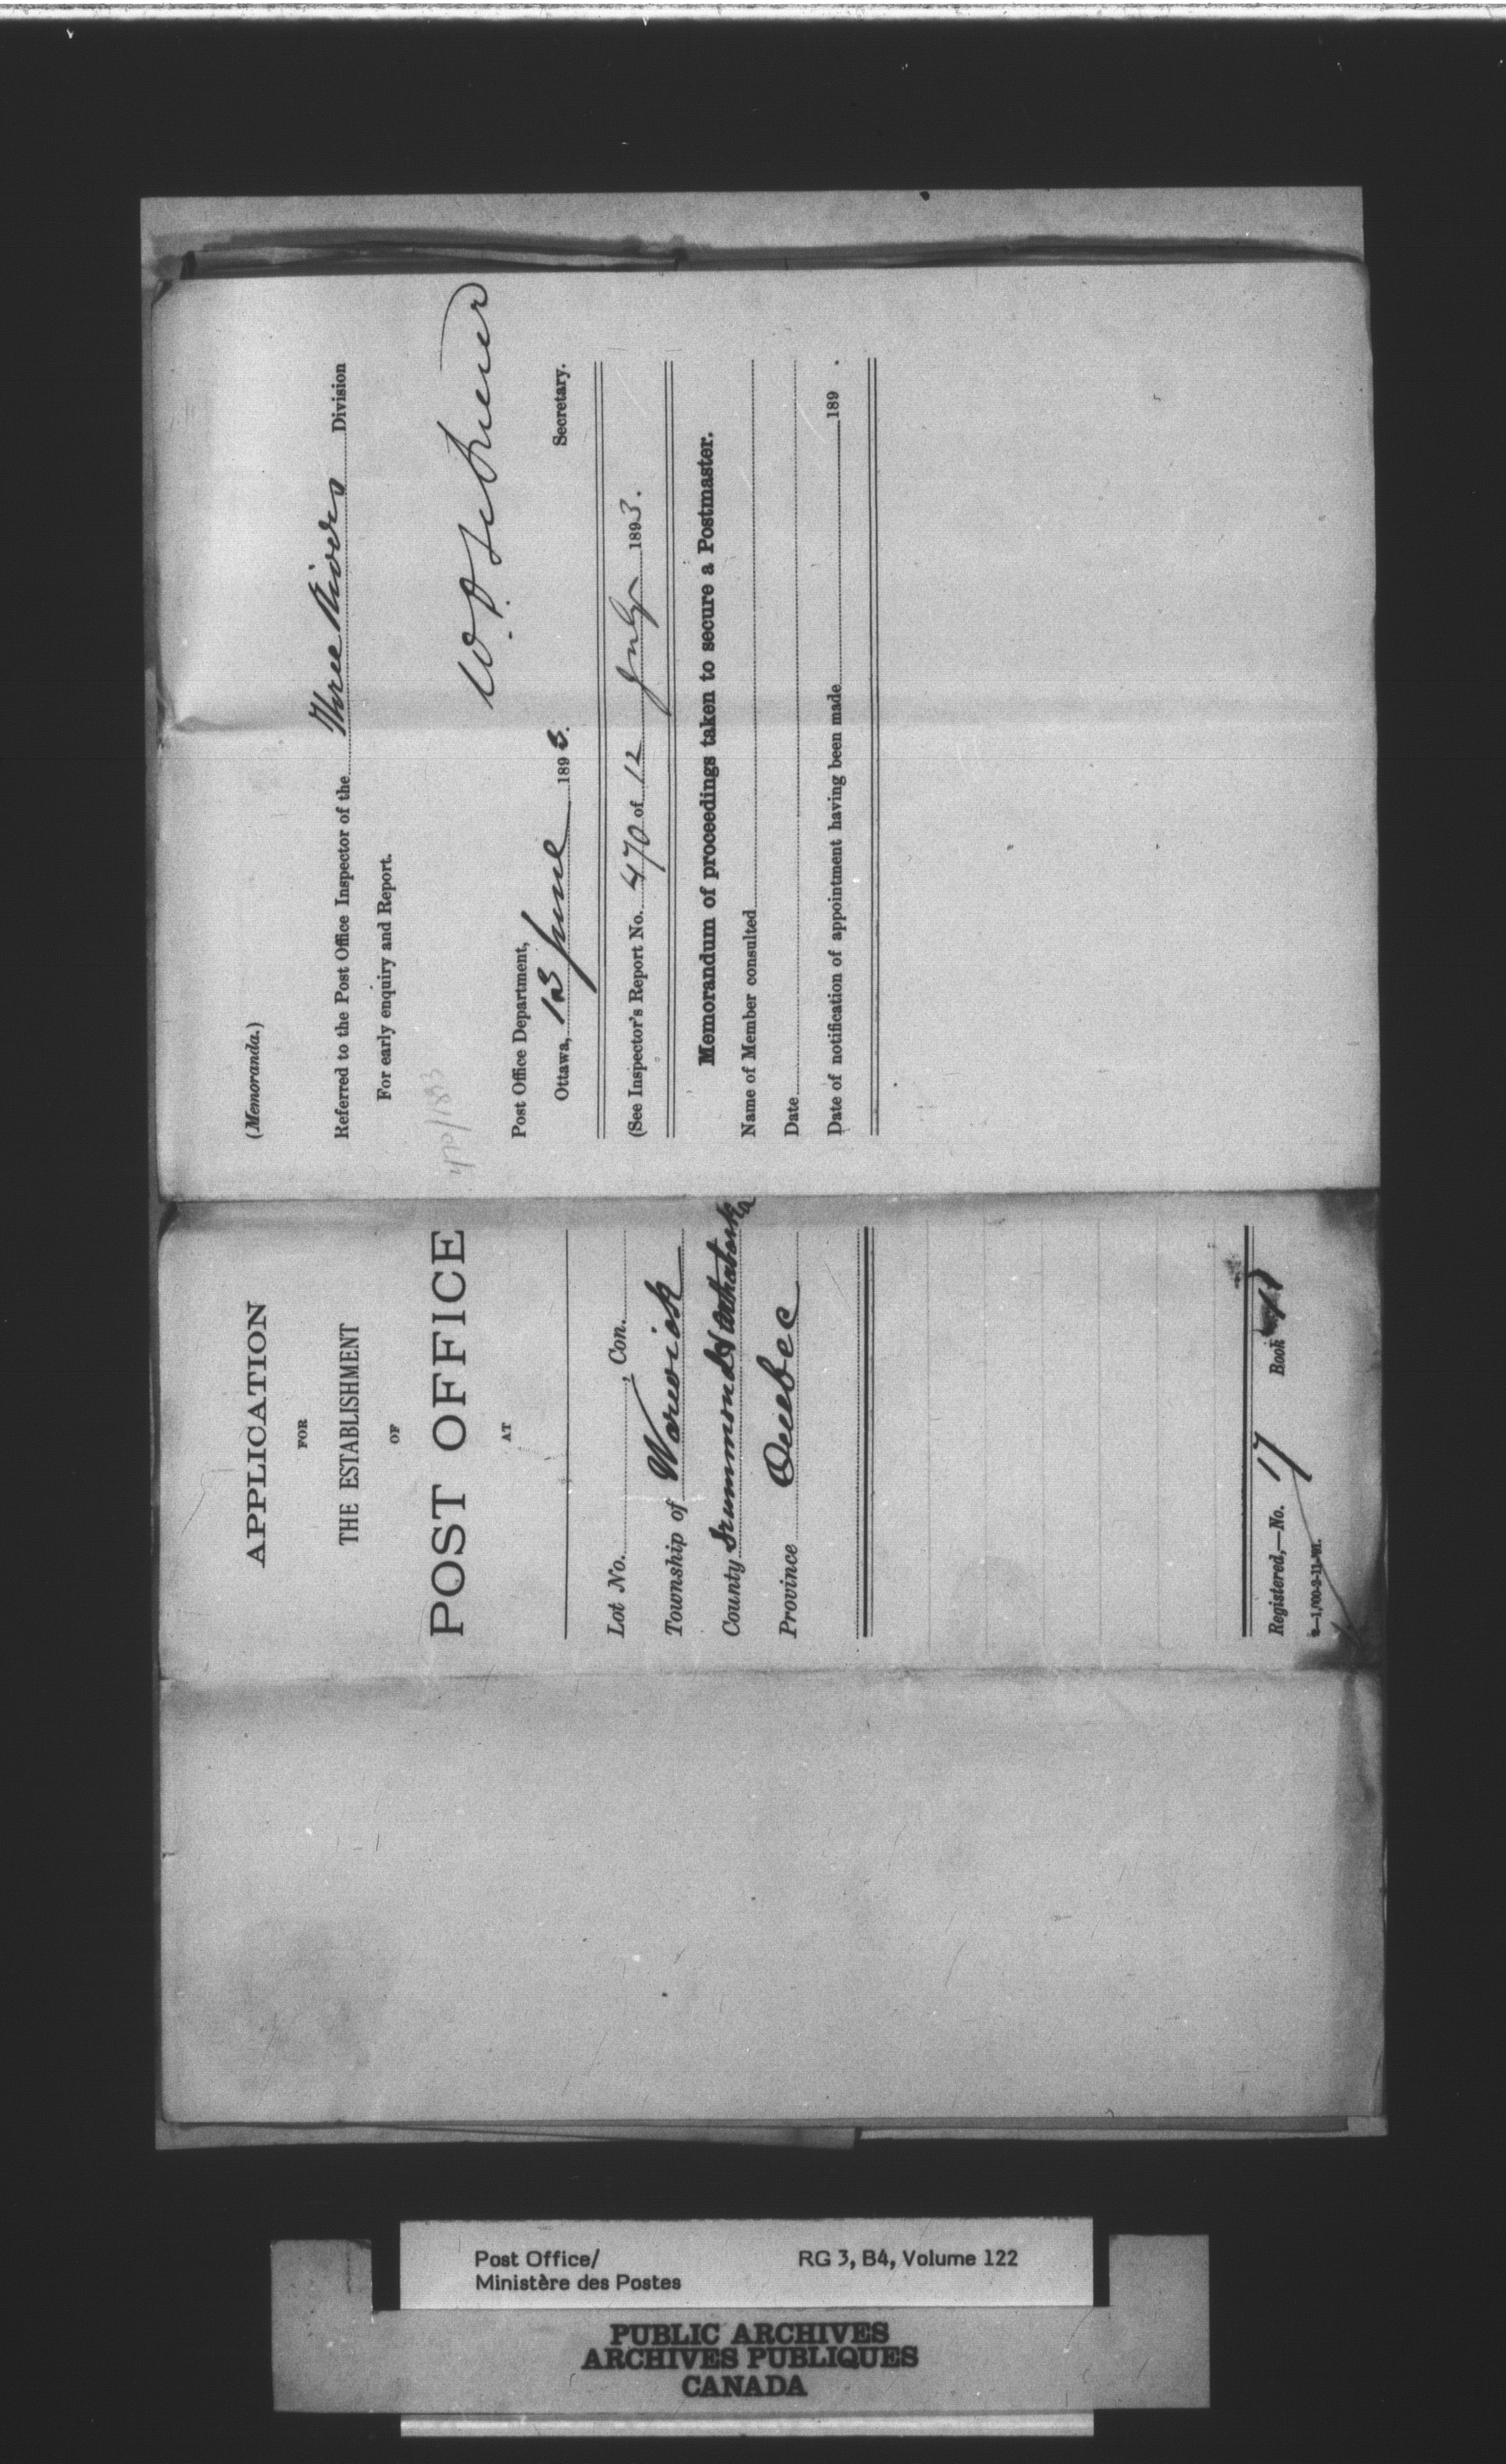 (Memoranda.)
Referred to the Post Office Inspector of the Three Rivers Division
For early enquiry and Report.
Post Office Department,
Ottawa, 13 June 1893.
Secretary.
(See Inspector's Report No. 470 of 12 July 1893.
Memorandum of proceedings taken to secure a Postmaster.
Name of Member consulted
Date
Date of notification of appointment having been made 189 .
APPLICATION
FOR
THE ESTABLISHMENT
OF
POST OFFICE
AT
Lot No. , Con.
Township of Warwick
County Drummond & Arthabaska
Province Quebec
Registered,—No. 17 Book
Post Office/
Ministère des Postes
RG 3, B4, Volume 122
PUBLIC ARCHIVES
ARCHIVES PUBLIQUES
CANADA